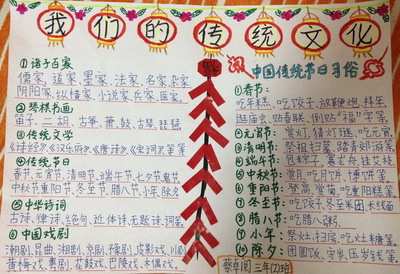 我们的传统文化
①诸子百家
儒家、道家、墨家、法家、名家、杂家
阴阳家、纵横家、小说家、兵家、医家。
②琴棋书画
笛子、二胡、古筝、萧、鼓、古琴、琵琶。
③传统文学
《诗经》《汉乐府》《唐诗》《宋词》等等
④传统节日
春节、元宵节、清明节、端午节、七夕节、鬼节
中秋节、重阳节、冬至节、腊八节、小年、除夕
⑤中华诗词
古诗、律诗、绝句、近体诗、无题诗、词等
⑥中国戏剧
湘剧、昆曲、湘剧、京剧、皮影戏、川剧
黄梅戏、粤剧、花鼓戏、巴陵戏、木偶戏。
中国传统节日习俗
①春节：
吃年糕、吃饺子、放鞭炮、拜年
逛庙会、贴春联、倒贴"福"字等
②元宵节：赏灯、猜灯谜、吃元宵
③清明节：祭祖扫墓、踏青郊游等
④端午节：包粽子、赛龙舟、挂艾枝
⑤中秋节：赏月、吃月饼、博饼等
⑥重阳节：登高、赏菊、吃重阳糕等
⑦冬至节：吃饺子、冬至米团、长线面
⑧腊八节：吃腊八粥。
⑨小年：祭灶、扫尘、吃灶糖等
⑩除夕：团圆饭、守岁、压岁钱等
三年(2)班